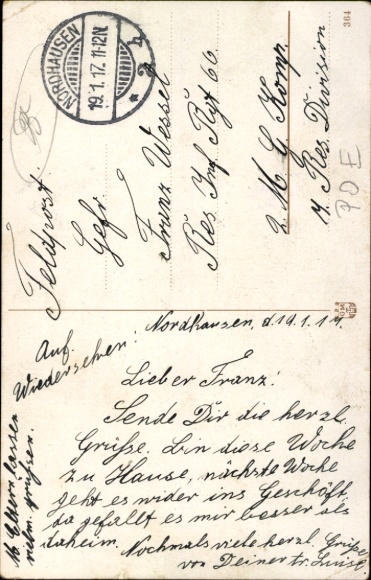 NORDHAUSEN
19.1.17. 11-12 N.
* 2 b
364
Feldpost.
Gefr.
Franz Wessel
Res. Inf. Rgt 66
2 M G Komp.
17 Res. Division
Nordhausen, d. 19.1.17.
Lieber Franz!
Sende Dir die herzl.
Grüße. Bin diese Woche
zu Hause, nächste Woche
geht es wider ins Geschäft,
da gefällt es mir besser als
daheim. Nochmals viele herzl. Grüße
von Deiner tr. Luise.
Auf
Wiedersehen!
Eltern lassen
grüßen.